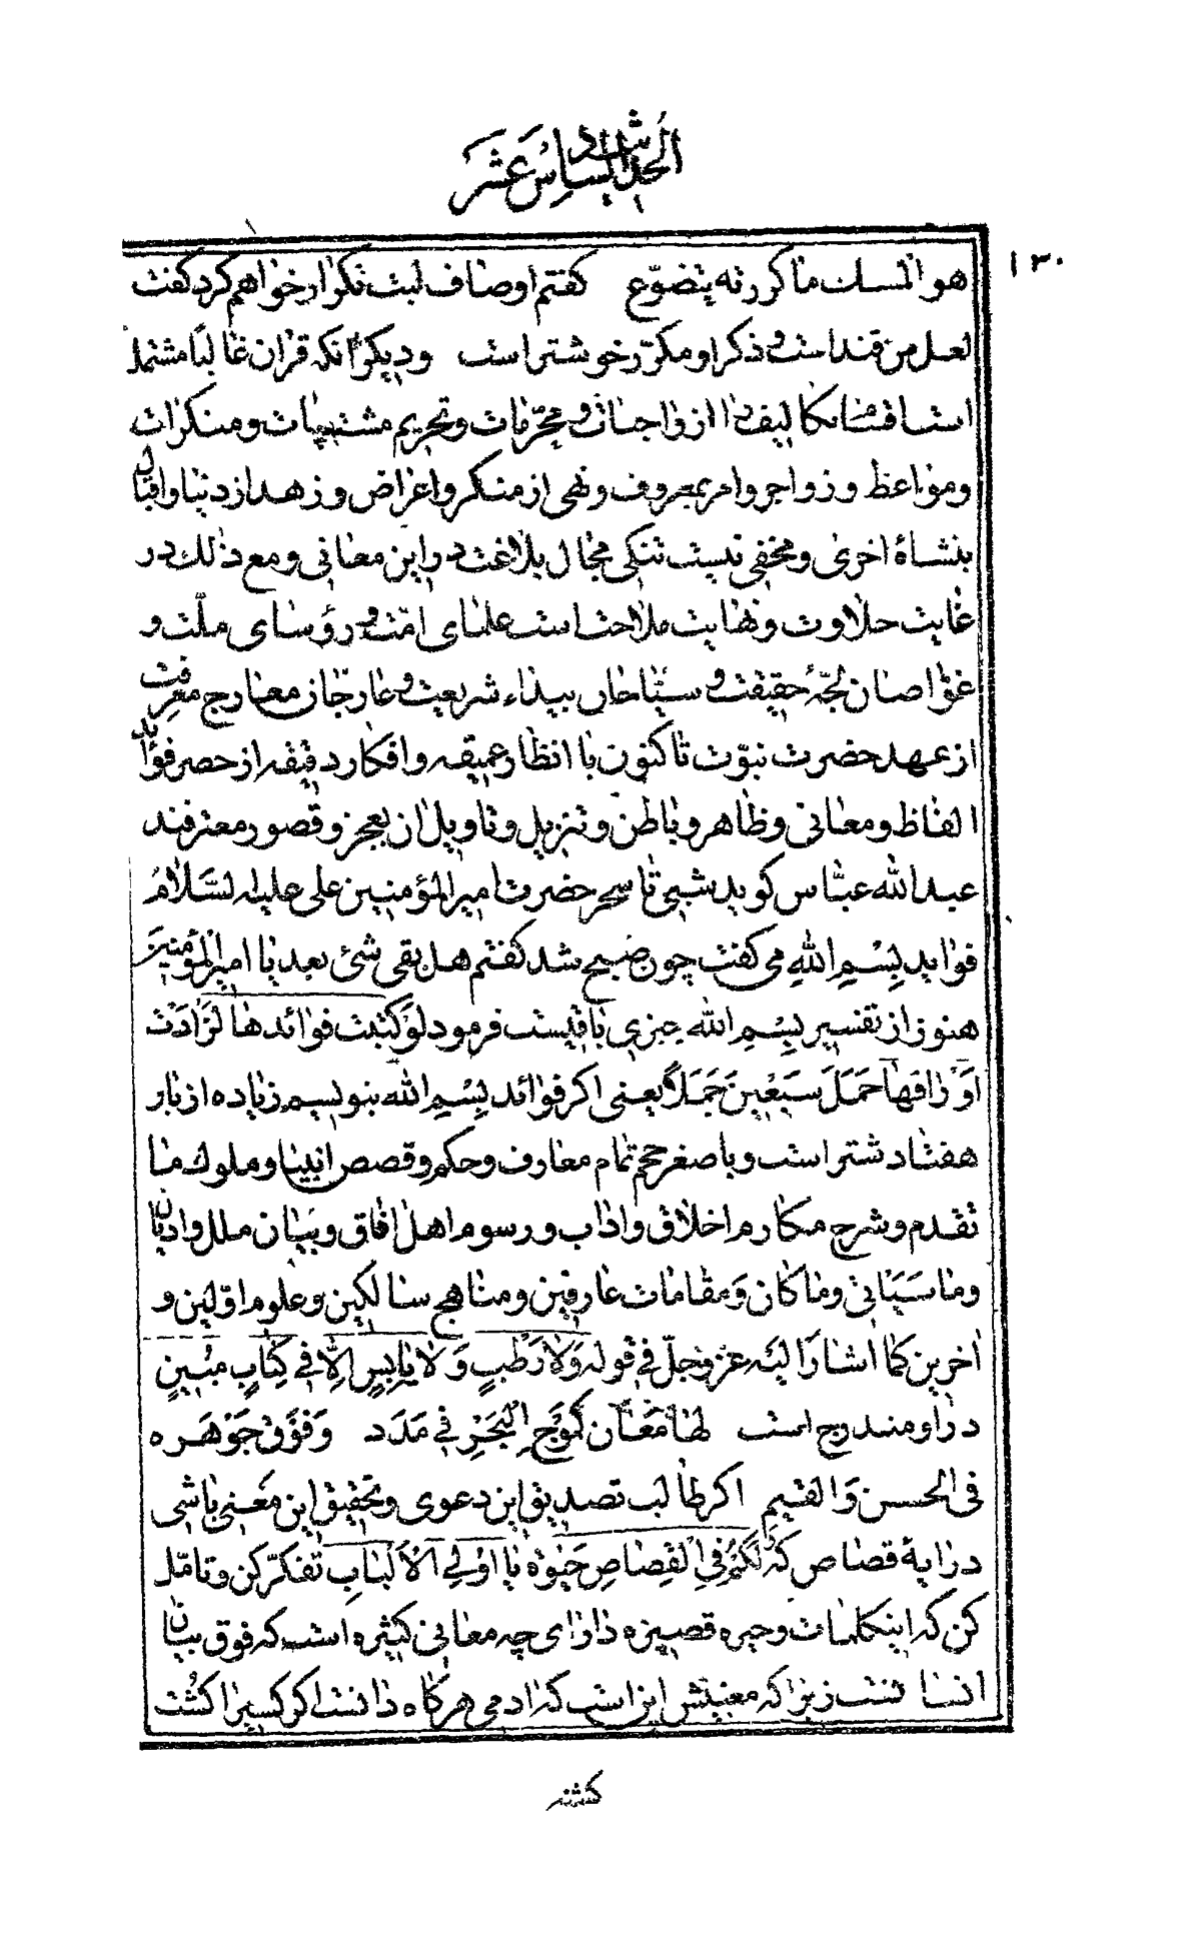 الحدیث السادس عشر
۱۳۰
هو المسك ما كررته يتضوّع گفتم اوصاف لبت تکرار خواهم کرد گفت
لعل من قند است و ذکر او مکرّر خوشتر است و دیکر آنکه قران غالبًا مشتمل
است تکالیف را از واجبات و محرّمات و تحریم مشتبهات و منکرات
و مواعظ و زواجر و امر بمعروف و نهی از منکر و اعراض و زهد از دنیا و اقبال
بنشاهٔ اخری و مخفی نیست تنکی مجال بلاغت در این معانی و مع ذلك در
غایت حلاوت و نهایت ملاحت است علمای امّت و رؤسای ملّت و
غوّاصان لجّهٔ حقیقت و سیّاحان بیداء شریعت و عارجان معارج معرفت
از عهد حضرت نبوّت تا کنون با انظار عمیقه و افکار دقیقه از حصر فواید
الفاظ و معانی و ظاهر و باطن و تنزیل و تاویل ان بعجز و قصور معترفند
عبد الله عبّاس کوید شبی تا سحر حضرت امیر المؤمنین علی علیه السّلام
فواید بِسْمِ اللهِ می کفت چون صبح شد کفتم هل بقی شئ بعد یا امیر المؤمنین
هنوز از تفسیر بِسْمِ الله چیزی باقیست فرمود لَوْ كتبت فوائدها لَزادَتْ
اَوْراقها حَمَلَ سَبْعِينَ جَمَلاً یعنی اکر فوائد بِسْمِ الله بنویسم زیاده از بار
هفتاد شتر است و با صغر حجم تمام معارف و حکم و قصص انبیا و ملوك ما
تقدم و شرح مکارم اخلاق و اداب و رسوم اهل افاق و بیان ملل و ادیان
و ما سَیَاتی و ما کان و مقامات عارفین و مناهج سالکین و علوم اوّلین و
اخرین كما اشار الیه عزّ و جلّ فی قوله وَلا رَطْبٍ وَلا يابِسٍ اِلّا فی كِتابٍ مُبينٍ
در او مندرج است لها مَعَانٍ كَمَوْجِ الْبَحْرِ فی مَدَدٍ وَفَوْقَ جَوْهَرِه
فی الحسن وَالقیم اکر طالب تصدیق این دعوی و تحقیق این معنی باشی
در ایهٔ قصاص که لَكُمْ فِی الْقِصاصِ حَیٰوة یا اُولِی الْاَلْبابِ تفکّر کن و تامّل
کن که اینکلمات وجیزه قصیره دارای چه معانی کثیره است که فوق بیان
انسا نست زیرا که معنیش این است که ادمی هرکاه دانست اکر کسیرا کشت
کشته